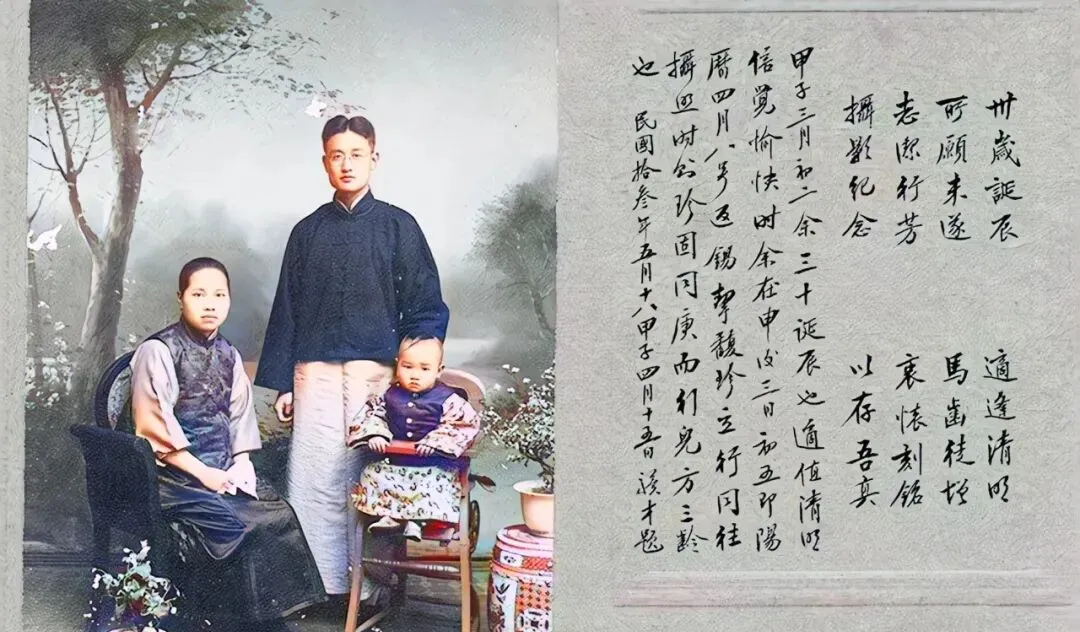 卅歲誕辰 適逢清明
所願未遂 馬齒徒增
志潔行芳 衷懷刻銘
攝影紀念 以存吾真
甲子三月初二余三十誕辰也適值清明
信覺愉快时余在申後三日初五即陽
曆四月八号返錫挈馥珍立行同往
攝照时珍固同庚而行兒方三齡
也 民國拾叁年五月十八甲子四月十五日才題